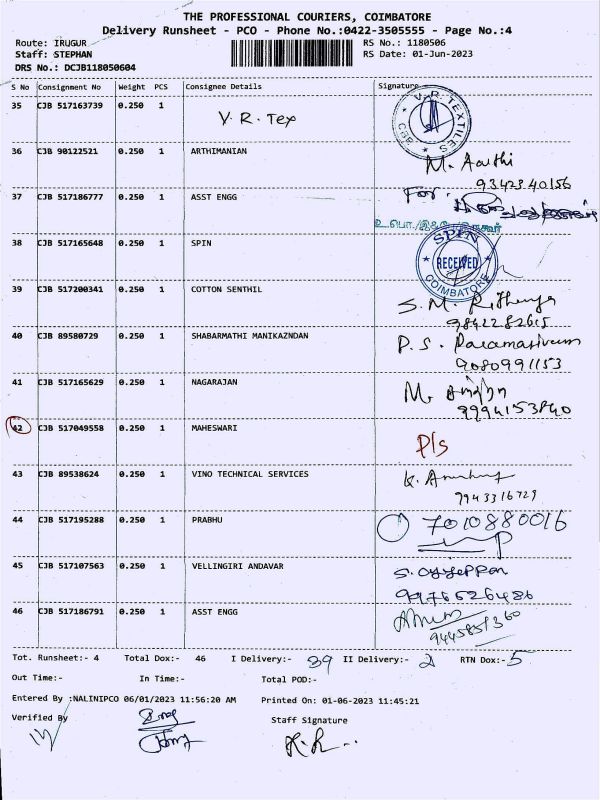 THE PROFESSIONAL COURIERS, COIMBATORE
Delivery Runsheet - PCO - Phone No.:0422-3505555 - Page No.:4
Route: IRUGUR RS No.: 1180506
Staff: STEPHAN RS Date: 01-Jun-2023
DRS No.: DCJB118050604
S No Consignment No Weight PCS Consignee Details Signature
35 CJB 517163739 0.250 1 V. R. Tex V.R.TEXTILES CBE
36 CJB 90122521 0.250 1 ARTHIMANIAN M. Aarthi
9342340156
37 CJB 517186777 0.250 1 ASST ENGG For
38 CJB 517165648 0.250 1 SPIN SPIN RECEIVED COIMBATORE
39 CJB 517200341 0.250 1 COTTON SENTHIL S. M.
9842282615
40 CJB 89580729 0.250 1 SHABARMATHI MANIKAZNDAN P. S. Paramasivam
9080991153
41 CJB 517165629 0.250 1 NAGARAJAN M.
42 CJB 517049558 0.250 1 MAHESWARI P/s
43 CJB 89538624 0.250 1 VINO TECHNICAL SERVICES K.
9943316729
44 CJB 517195288 0.250 1 PRABHU 7010880016
45 CJB 517107563 0.250 1 VELLINGIRI ANDAVAR S. Ayyappan
9976626486
46 CJB 517186791 0.250 1 ASST ENGG
9445851360
Tot. Runsheet:- 4 Total Dox:- 46 I Delivery:- 39 II Delivery:- 2 RTN Dox:- 5
Out Time:- In Time:- Total POD:-
Entered By :NALINIPCO 06/01/2023 11:56:20 AM Printed On: 01-06-2023 11:45:21
Verified By Staff Signature
K.R...